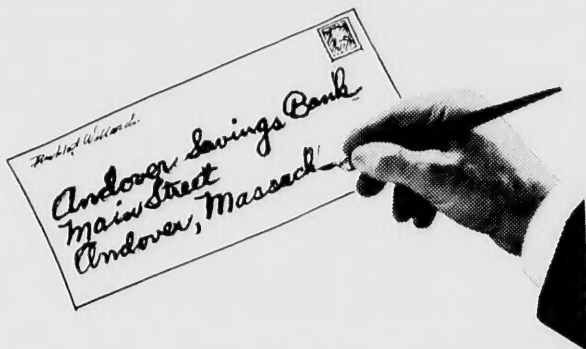 Andover Savings Bank
Main Street
Andover, Massach